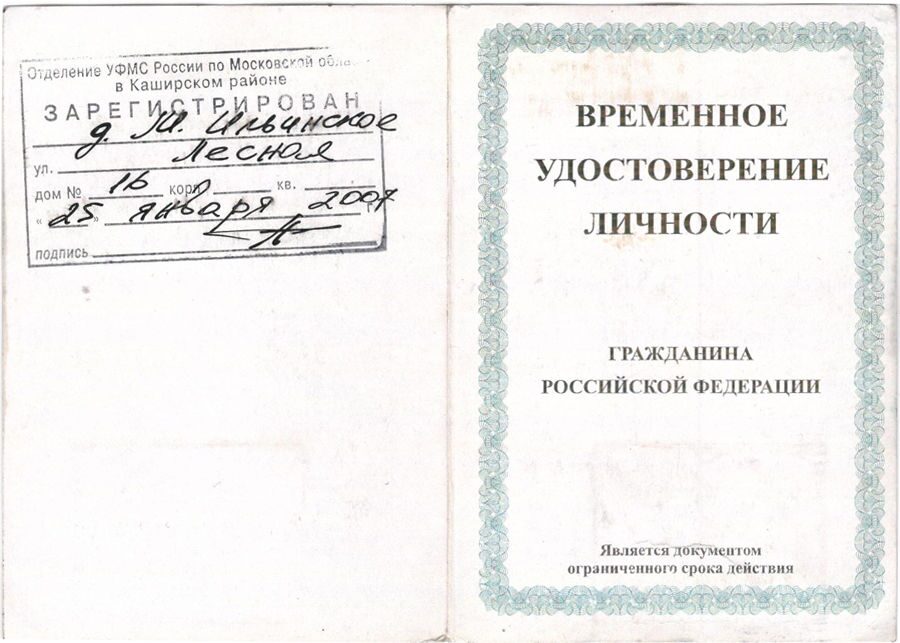 Отделение УФМС России по Московской
в Каширском районе
ЗАРЕГИСТРИРОВАН
д. М. Ильинское
ул. Лесная
дом № 16 корп. кв.
« 25 » января 2007
подпись
ВРЕМЕННОЕ
УДОСТОВЕРЕНИЕ
ЛИЧНОСТИ
ГРАЖДАНИНА
РОССИЙСКОЙ ФЕДЕРАЦИИ
Является документом
ограниченного срока действия